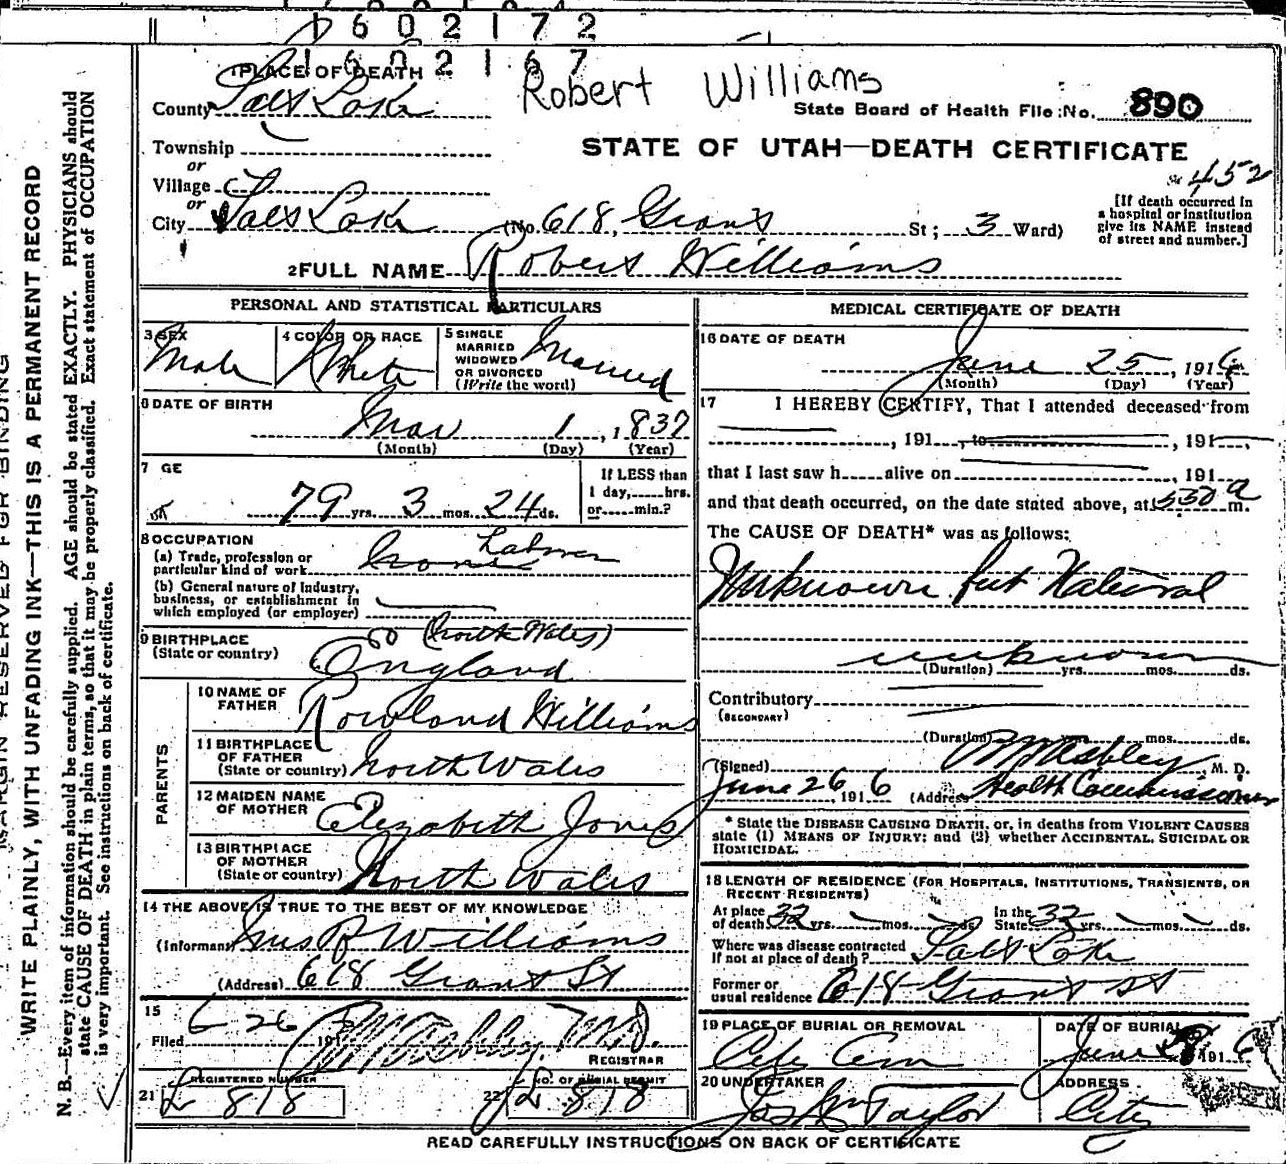 1602172
1602167
Robert Williams
1 PLACE OF DEATH
County Salt Lake
State Board of Health File No. 890
STATE OF UTAH—DEATH CERTIFICATE
Township
or
Village
or
City Salt Lake (No. 618, Grant St; 3 Ward)
452
[If death occurred in
a hospital or institution
give its NAME instead
of street and number.]
2 FULL NAME Robert Williams
PERSONAL AND STATISTICAL PARTICULARS
3 SEX
Male
4 COLOR OR RACE
White
5 SINGLE
MARRIED
WIDOWED
OR DIVORCED
(Write the word)
Married
6 DATE OF BIRTH
Mar 1, 1837
(Month) (Day) (Year)
7 GE
79 yrs. 3 mos. 24 ds.
If LESS than
1 day, hrs.
or min.?
8 OCCUPATION
(a) Trade, profession or
particular kind of work
Laborer
(b) General nature of industry,
business, or establishment in
which employed (or employer)
9 BIRTHPLACE
(State or country)
(North Wales)
England
PARENTS
10 NAME OF
FATHER
Rowland Williams
11 BIRTHPLACE
OF FATHER
(State or country) North Wales
12 MAIDEN NAME
OF MOTHER
Elizabeth Jones
13 BIRTHPLACE
OF MOTHER
(State or country) North Wales
14 THE ABOVE IS TRUE TO THE BEST OF MY KNOWLEDGE
(Informant) Mrs R Williams
(Address) 618 Grant St
15
Filed 6-26 191
M.D.
REGISTRAR
21 REGISTERED NUMBER
L 818
22 NO. OF BURIAL PERMIT
L 818
MEDICAL CERTIFICATE OF DEATH
16 DATE OF DEATH
June 25, 1916
(Month) (Day) (Year)
17 I HEREBY CERTIFY, That I attended deceased from
, 191 , to , 191
that I last saw h alive on , 191
and that death occurred, on the date stated above, at 530 a m.
The CAUSE OF DEATH* was as follows:
Unknown but Natural
unknown
(Duration) yrs. mos. ds.
Contributory
(SECONDARY)
(Duration) mos. ds.
(Signed) M. D.
June 26, 1916 (Address) Health Commissioner
* State the DISEASE CAUSING DEATH, or, in deaths from VIOLENT CAUSES
state (1) MEANS OF INJURY; and (2) whether ACCIDENTAL, SUICIDAL OR
HOMICIDAL.
18 LENGTH OF RESIDENCE (FOR HOSPITALS, INSTITUTIONS, TRANSIENTS, OR
RECENT RESIDENTS)
At place
of death 32 yrs. mos. ds. In the
State 32 yrs. mos. ds.
Where was disease contracted
If not at place of death? Salt Lake
Former or
usual residence 618 Grant St
19 PLACE OF BURIAL OR REMOVAL
City Cem
DATE OF BURIAL
June 1916
20 UNDERTAKER
Jos Wm Taylor
ADDRESS
City
READ CAREFULLY INSTRUCTIONS ON BACK OF CERTIFICATE
MARGIN RESERVED FOR BINDING
WRITE PLAINLY, WITH UNFADING INK—THIS IS A PERMANENT RECORD
N. B.—Every item of information should be carefully supplied. AGE should be stated EXACTLY. PHYSICIANS should
state CAUSE OF DEATH in plain terms, so that it may be properly classified. Exact statement of OCCUPATION
is very important. See instructions on back of certificate.